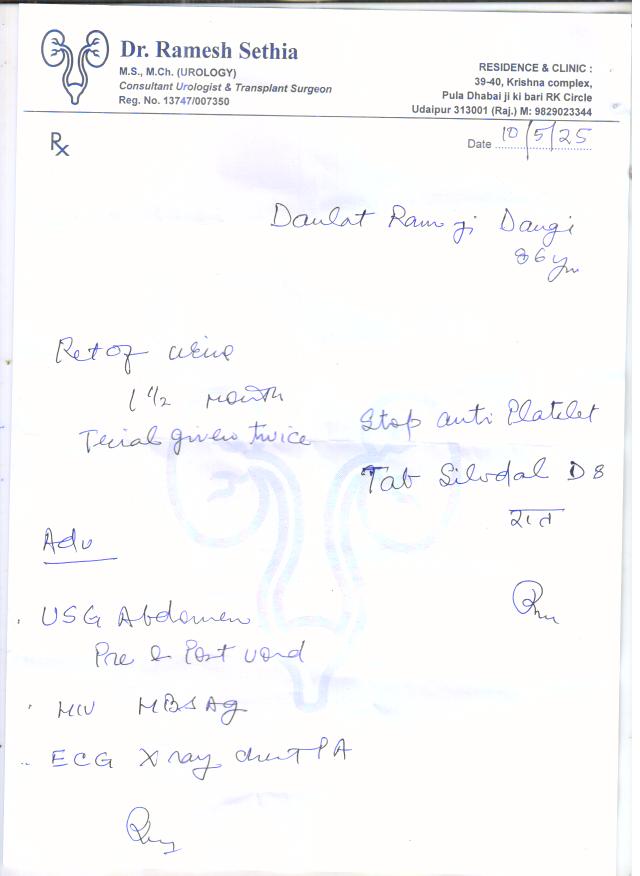 Dr. Ramesh Sethia
M.S., M.Ch. (UROLOGY)
Consultant Urologist & Transplant Surgeon
Reg. No. 13747/007350
RESIDENCE & CLINIC :
39-40, Krishna complex,
Pula Dhabai ji ki bari RK Circle
Udaipur 313001 (Raj.) M: 9829023344
Rx
Date 10/5/25
Daulat Ram ji Dangi
86 yr
Ret of urine
1 1/2 month
Terial given twice
Stop anti Platelet
Tab Silodal D 8
रात
Adv
USG Abdomen
Pre & Post void
HIV HBSAg
ECG X ray chest PA